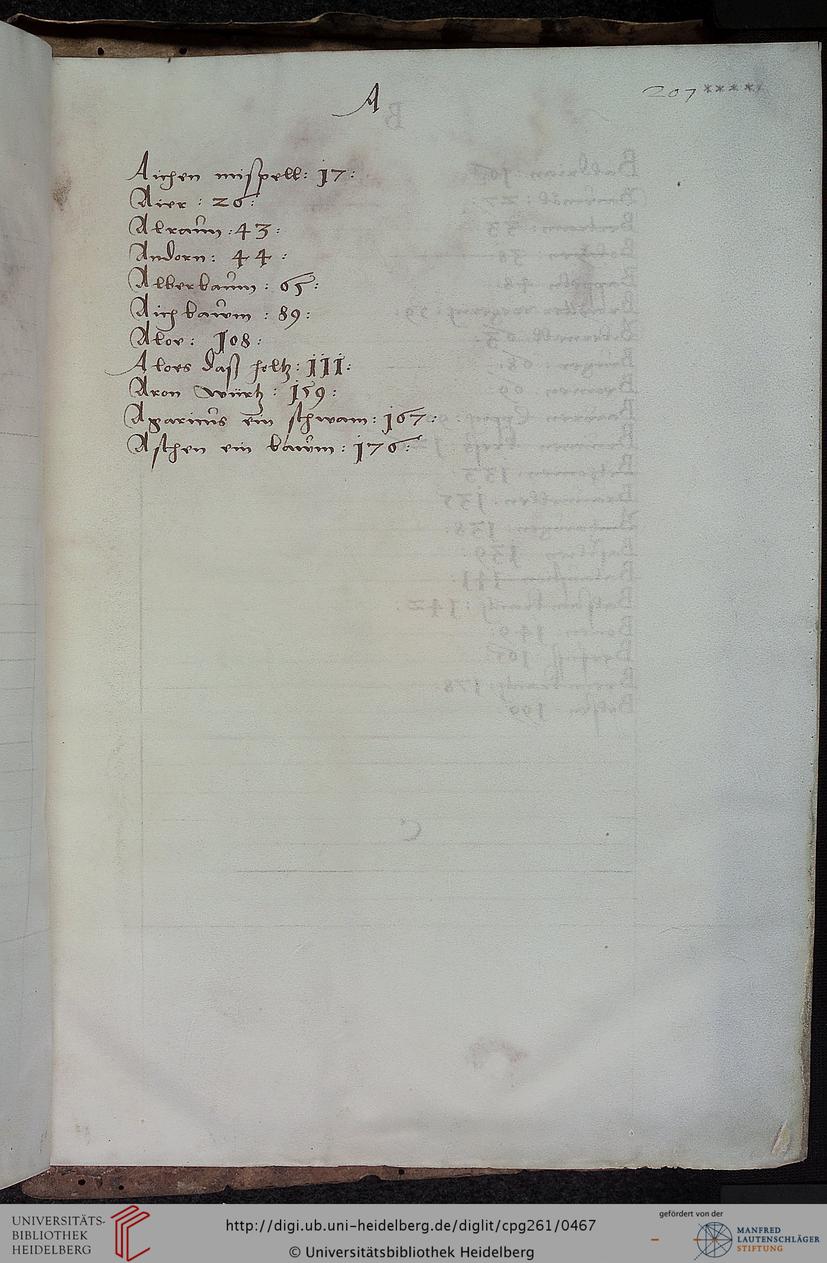 A
207****
Aichen mispell: 17:
Aier: 26:
Alraun: 43:
Andorn: 44:
Alberbaum: 65:
Aichbawm: 89:
Aloe: 108:
Aloes daß holtz: 111:
Aron würtz: 159:
Agaricus ein schwam: 167:
Aschen ein bawm: 176:
UNIVERSITÄTS-
BIBLIOTHEK
HEIDELBERG
http://digi.ub.uni-heidelberg.de/diglit/cpg261/0467
© Universitätsbibliothek Heidelberg
gefördert von der
MANFRED
LAUTENSCHLÄGER
STIFTUNG